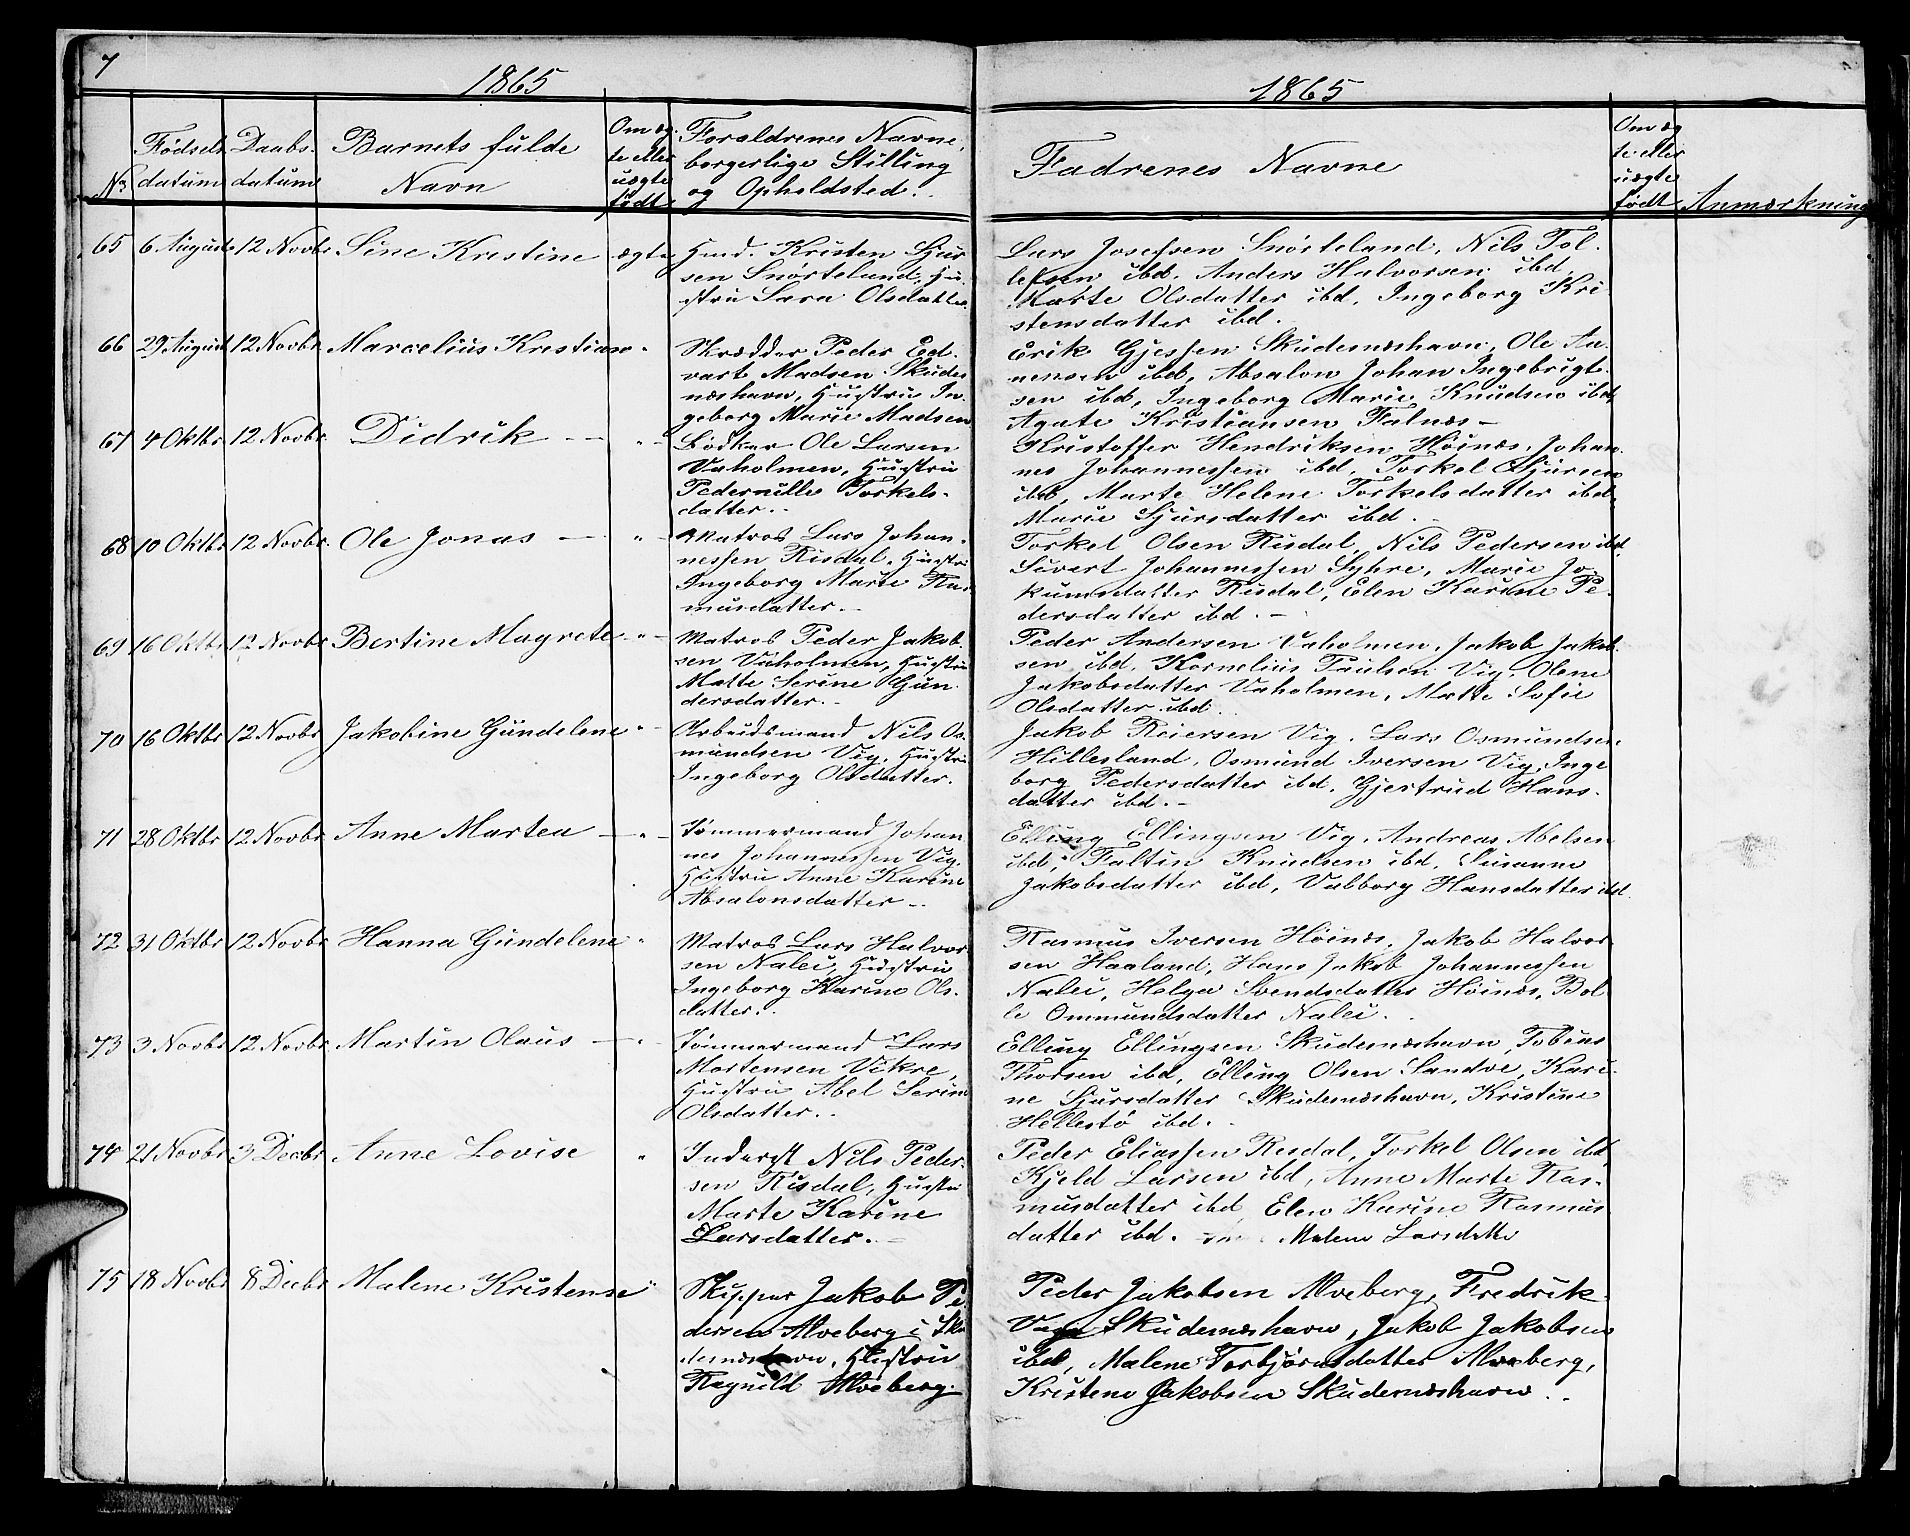 7
1865
1865
No
Fødsels
datum
Daabs-
datum
Barnets fulde
Navn
Om æg-
te eller
uægte
født
Foraldrenes Navne,
borgerlige Stilling
og Opholdsted.
Fadrenes Navne
Om æg
te eller
uægte
født
Anmærkning
65 6 August 12 Novbr Sine Kristine ægte
Gmd. Kristen Sjur
sen Snørteland, Hu-
stru Sara Olsdatter
Lars Josefsen Snørteland, Nils Tol-
lefsen ibd, Anders Halvorsen ibd,
Marte Olsdatter ibd, Ingeborg Kri
stensdatter ibd.
66 29 August 12 Novbr Marcelius Kristian "
Skrædder Peder Ed-
vart Madsen Skudes
næshavn, Hustru In-
geborg Marie Madsen
Erik Gjessen Skudesnæshavn, Ole An-
nensen ibd, Absalon Johan Ingebrigt-
sen ibd, Ingeborg Marie Knudsen ibd,
Agate Kristiansen Falnæs -
67 4 Oktbr 12 Novbr Didrik - "
Bødker Ole Larsen
Vaholmen, Hustru
Pedernille Torkels-
datter. -
Kristoffer Hendriksen Høinæs, Johan-
nes Johannessen ibd, Torkel Sjursen
ibd, Marte Helene Torkelsdatter ibd,
Marie Sjursdatter ibd.
68 10 Oktbr 12 Novbr Ole Jonas - "
Matros Lars Johan-
nessen Risdal, Hustru
Ingeborg Marie Ras-
musdatter. -
Torkel Olsen Risdal, Nils Pedersen ibd
Sivert Johannessen Syhre, Marie Jo
kumsdatter Risdal, Elen Karine Pe-
dersdatter ibd. -
69 16 Oktbr 12 Novbr Bertine Magrete "
Matros Peder Jakob
sen Vaholmen, Hustru
Matte Serine Gun
dersdatter. -
Peder Andersen Vaholmen, Jakob Jakob-
sen ibd, Kornelius Paulsen Vig, Olene
Jakobsdatter Vaholmen, Mætte Sofie
Olsdatter ibd.
70 16 Oktbr 12 Novbr Jakobine Gundelene "
Arbeidsmand Nils Os-
mundsen Vig, Hustru
Ingeborg Olsdatter.
Jakob Reiersen Vig, Lars Osmundsen
Hillesland, Osmund Iversen Vig, Inge
borg Pedersdatter ibd, Gjertrud Hans-
datter ibd. -
71 28 Oktbr 12 Novbr Anne Martea - "
Tømmermand Johan
nes Johannessen Vig,
Hustru Anne Karine
Absalonsdatter -
Elling Ellingsen Vig, Andreas Abelsen
ibd, Faltin Knudsen ibd, Susanne
Jakobsdatter ibd, Valborg Hansdatter ibd.
72 31 Oktbr 12 Novbr Hanna Gundelene "
Matros Lars Halvor-
sen Nalei, Hustru
Ingeborg Karine Ols-
datter.
Rasmus Iversen Høinæs, Jakob Halvor-
sen Haaland, Hans Jakob Johannessen
Nalei, Helga Svendsdatter Høinæs, Bol
le Ommundsdatter Nalei.
73 3 Novbr 12 Novbr Martin Olaus - "
Tømmermand Lars
Mortensen Vikre,
Hustru Abel Serine
Olsdatter.
Elling Ellingsen Skudesnæshavn, Tobias
Thorsen ibd, Elling Olsen Sandve, Kari-
ne Sjursdatter Skudesnæshavn, Kristine
Hellestø ibd.
74 21 Novbr 3 Decbr Anne Lovise "
Inderst Nils Peder-
sen Risdal, Hustru
Marte Karine
Larsdatter. -
Peder Eliassen Risdal, Torkel Olsen ibd,
Kjeld Larsen ibd, Anne Marte Ras-
musdatter ibd Elen Karine Rasmus
datter ibd. Malene Larsdatte
75 18 Novbr 8 Decbr Malene Kristense "
Skipper Jakob Pe-
dersen Alveberg i Sku
desnæshavn, Hustru
Ragnild Alveberg.
Peder Jakobsen Alveberg, Fredrik
Skudesnæshavn, Jakob Jakobsen
ibd, Malene Torbjørnsdatter Alveberg,
Kristene Jakobsen Skudesnæshavn.